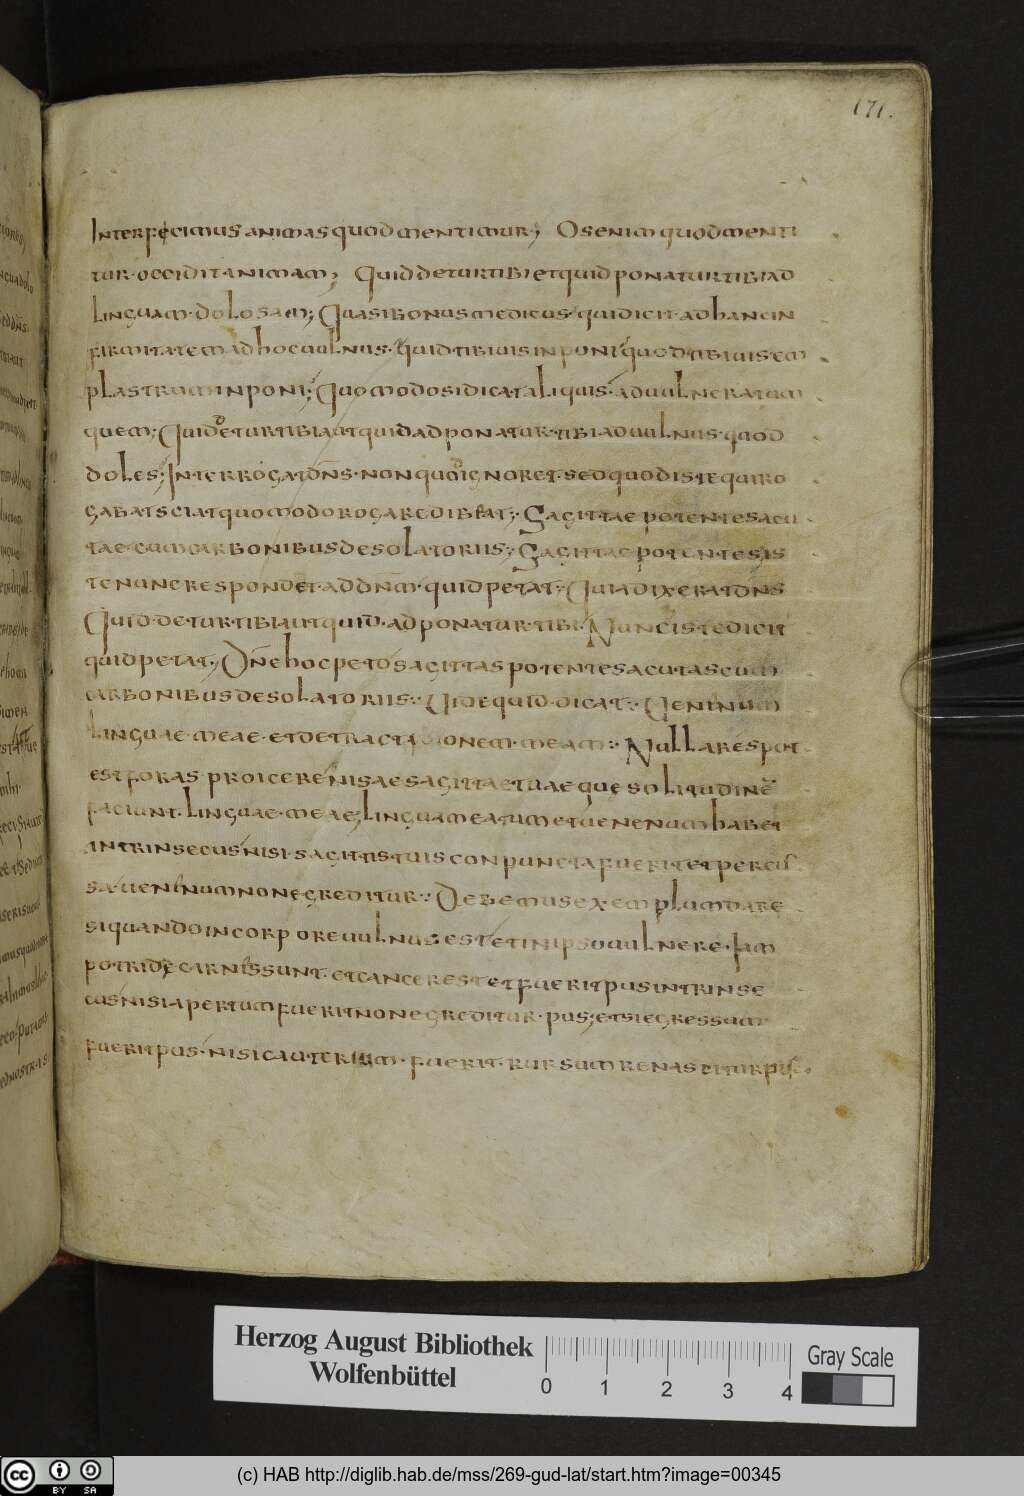 171.
Interfecimus animas quod mentimur; Os enim quod menti
tur · occidit animam; Quid detur tibi et quid ponatur tibi ad
linguam · dolosam; Quasi bonus medicus · qui dicit · ad hanc in
firmitatem ad hoc uulnus · quid tibi uis inponi quod tibi uis em
plastrum inponi; Quomodo si dicat aliquis · ad uulneratum
quem; Quid detur tibi aut quid adponatur · tibi ad uulnus · quod
doles; Interrogat dn̄s · non quod ignoret · sed quod iste qui ro
gabat sciat quomodo rogare dibeat; Sagittae potentes acu
tae · cum carbonibus desolatoriis; Sagittae potentes is
te nunc respondet ad dn̄m · quid petat; Quia dixerat dn̄s
Quid · detur tibi aut quid · adponatur · tibi · Nunc iste dicit
quid petat; Dn̄e hoc peto sagittas potentes acutas cum
carbonibus desolatoriis; Uide quid · dicat; Ueninum
linguae · meae · et detractionem · meam; Nulla res pot
est foras proicere nisi sagittae tuae que solitudinē
faciunt · linguae · meae; lingua mea tumet uenenum habet
intrinsecus nisi · sagitis tuis conpuncta fuerit et percus
sa · ueninum non egreditur; Debemus exemplum dare
si quando in corpore uulnus est et in ipso uulnere · iam
potride carnis sunt · et cancer est et fuerit pus intrinse
cus nisi apertum fuerit non egreditur · pus; et si egressum
fuerit pus · nisi cauterium · fuerit · rursum renascitur pus
Herzog August Bibliothek
Wolfenbüttel
0 1 2 3 4
Gray Scale
cc BY SA
(c) HAB http://diglib.hab.de/mss/269-gud-lat/start.htm?image=00345